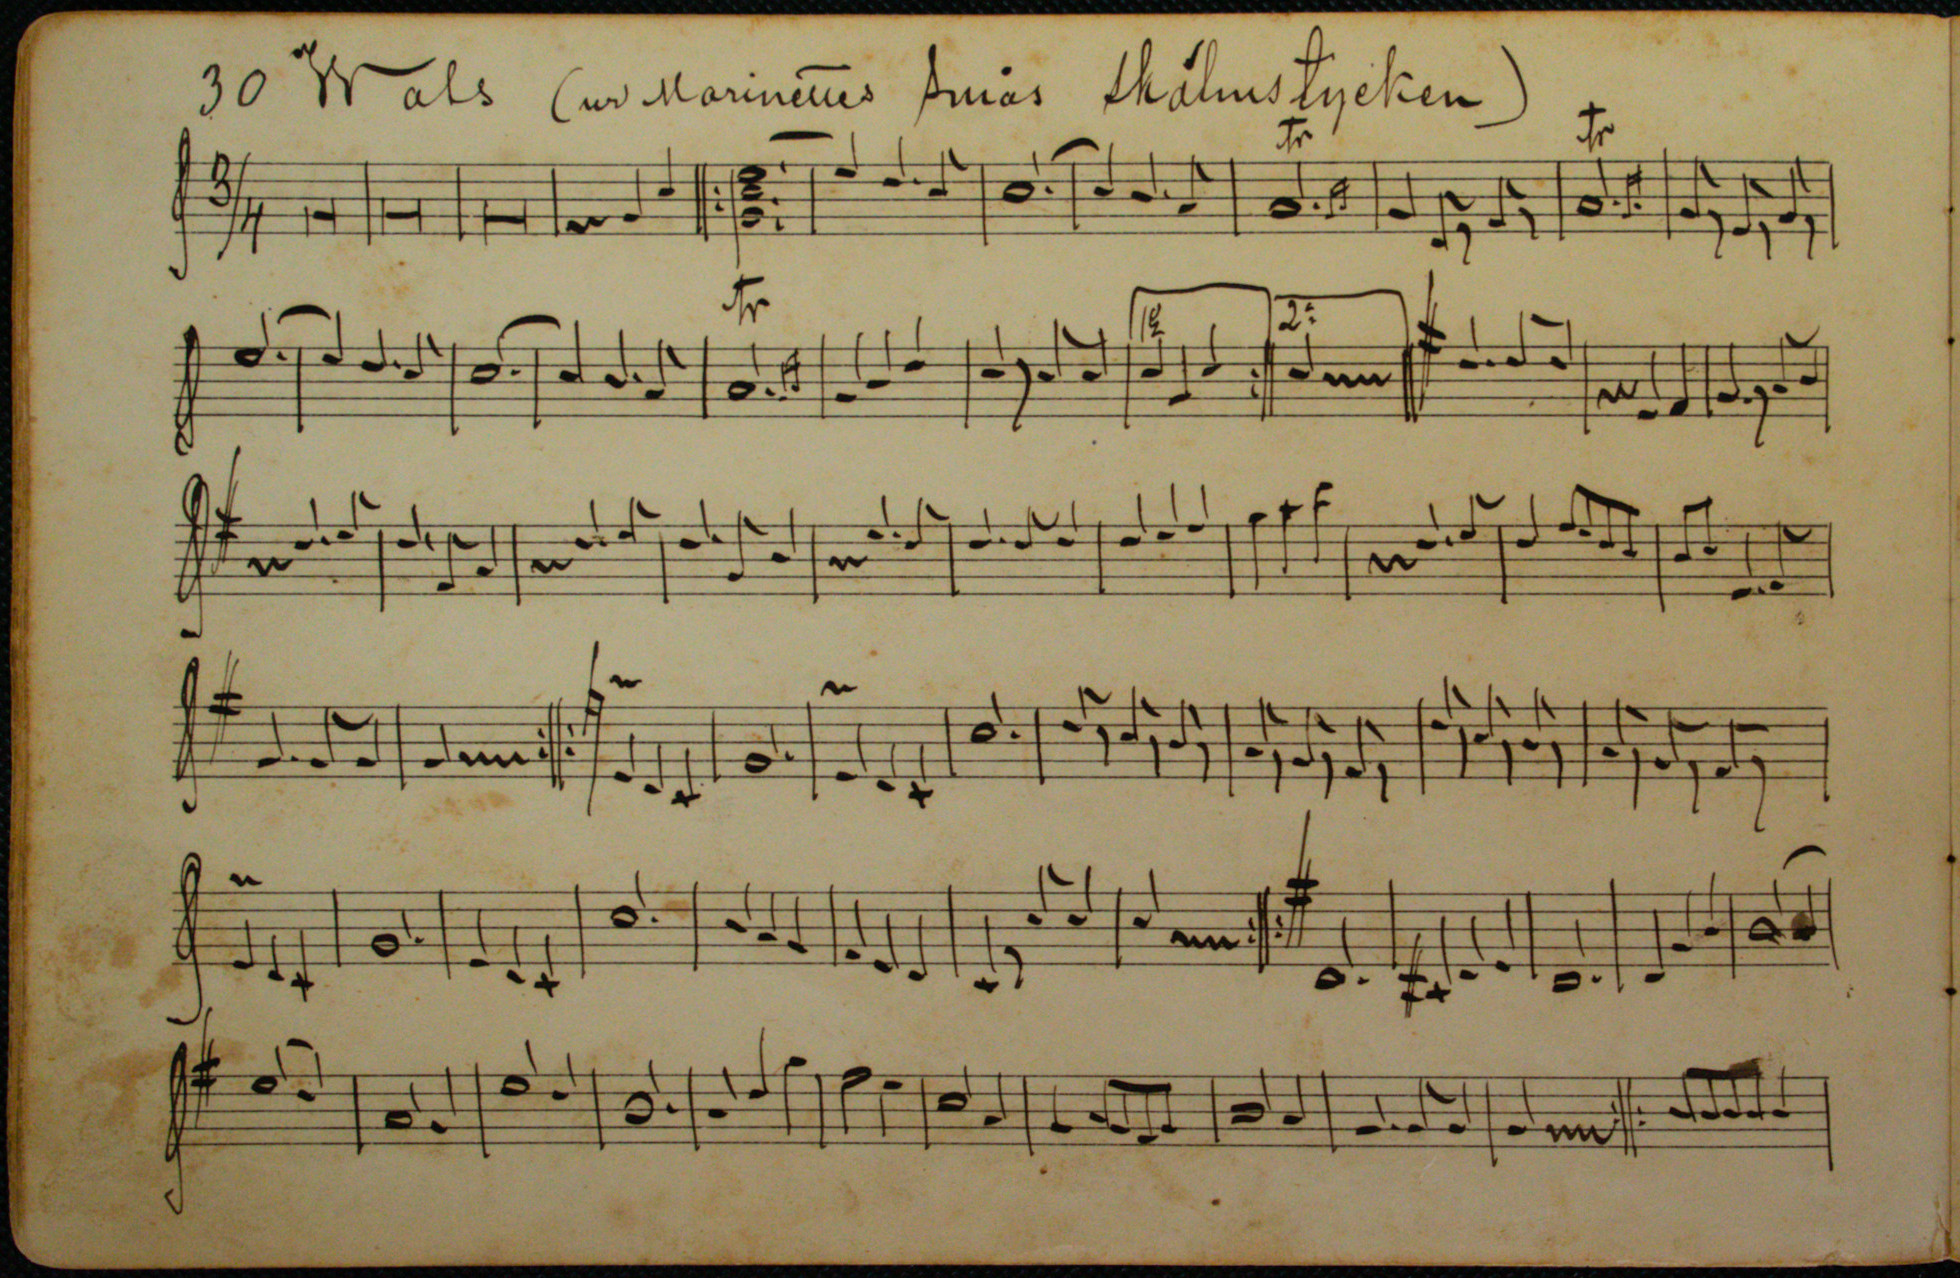 30 Wals (ur Marinettes små skälmstycken)
3/4
tr tr
tr 1a 2a